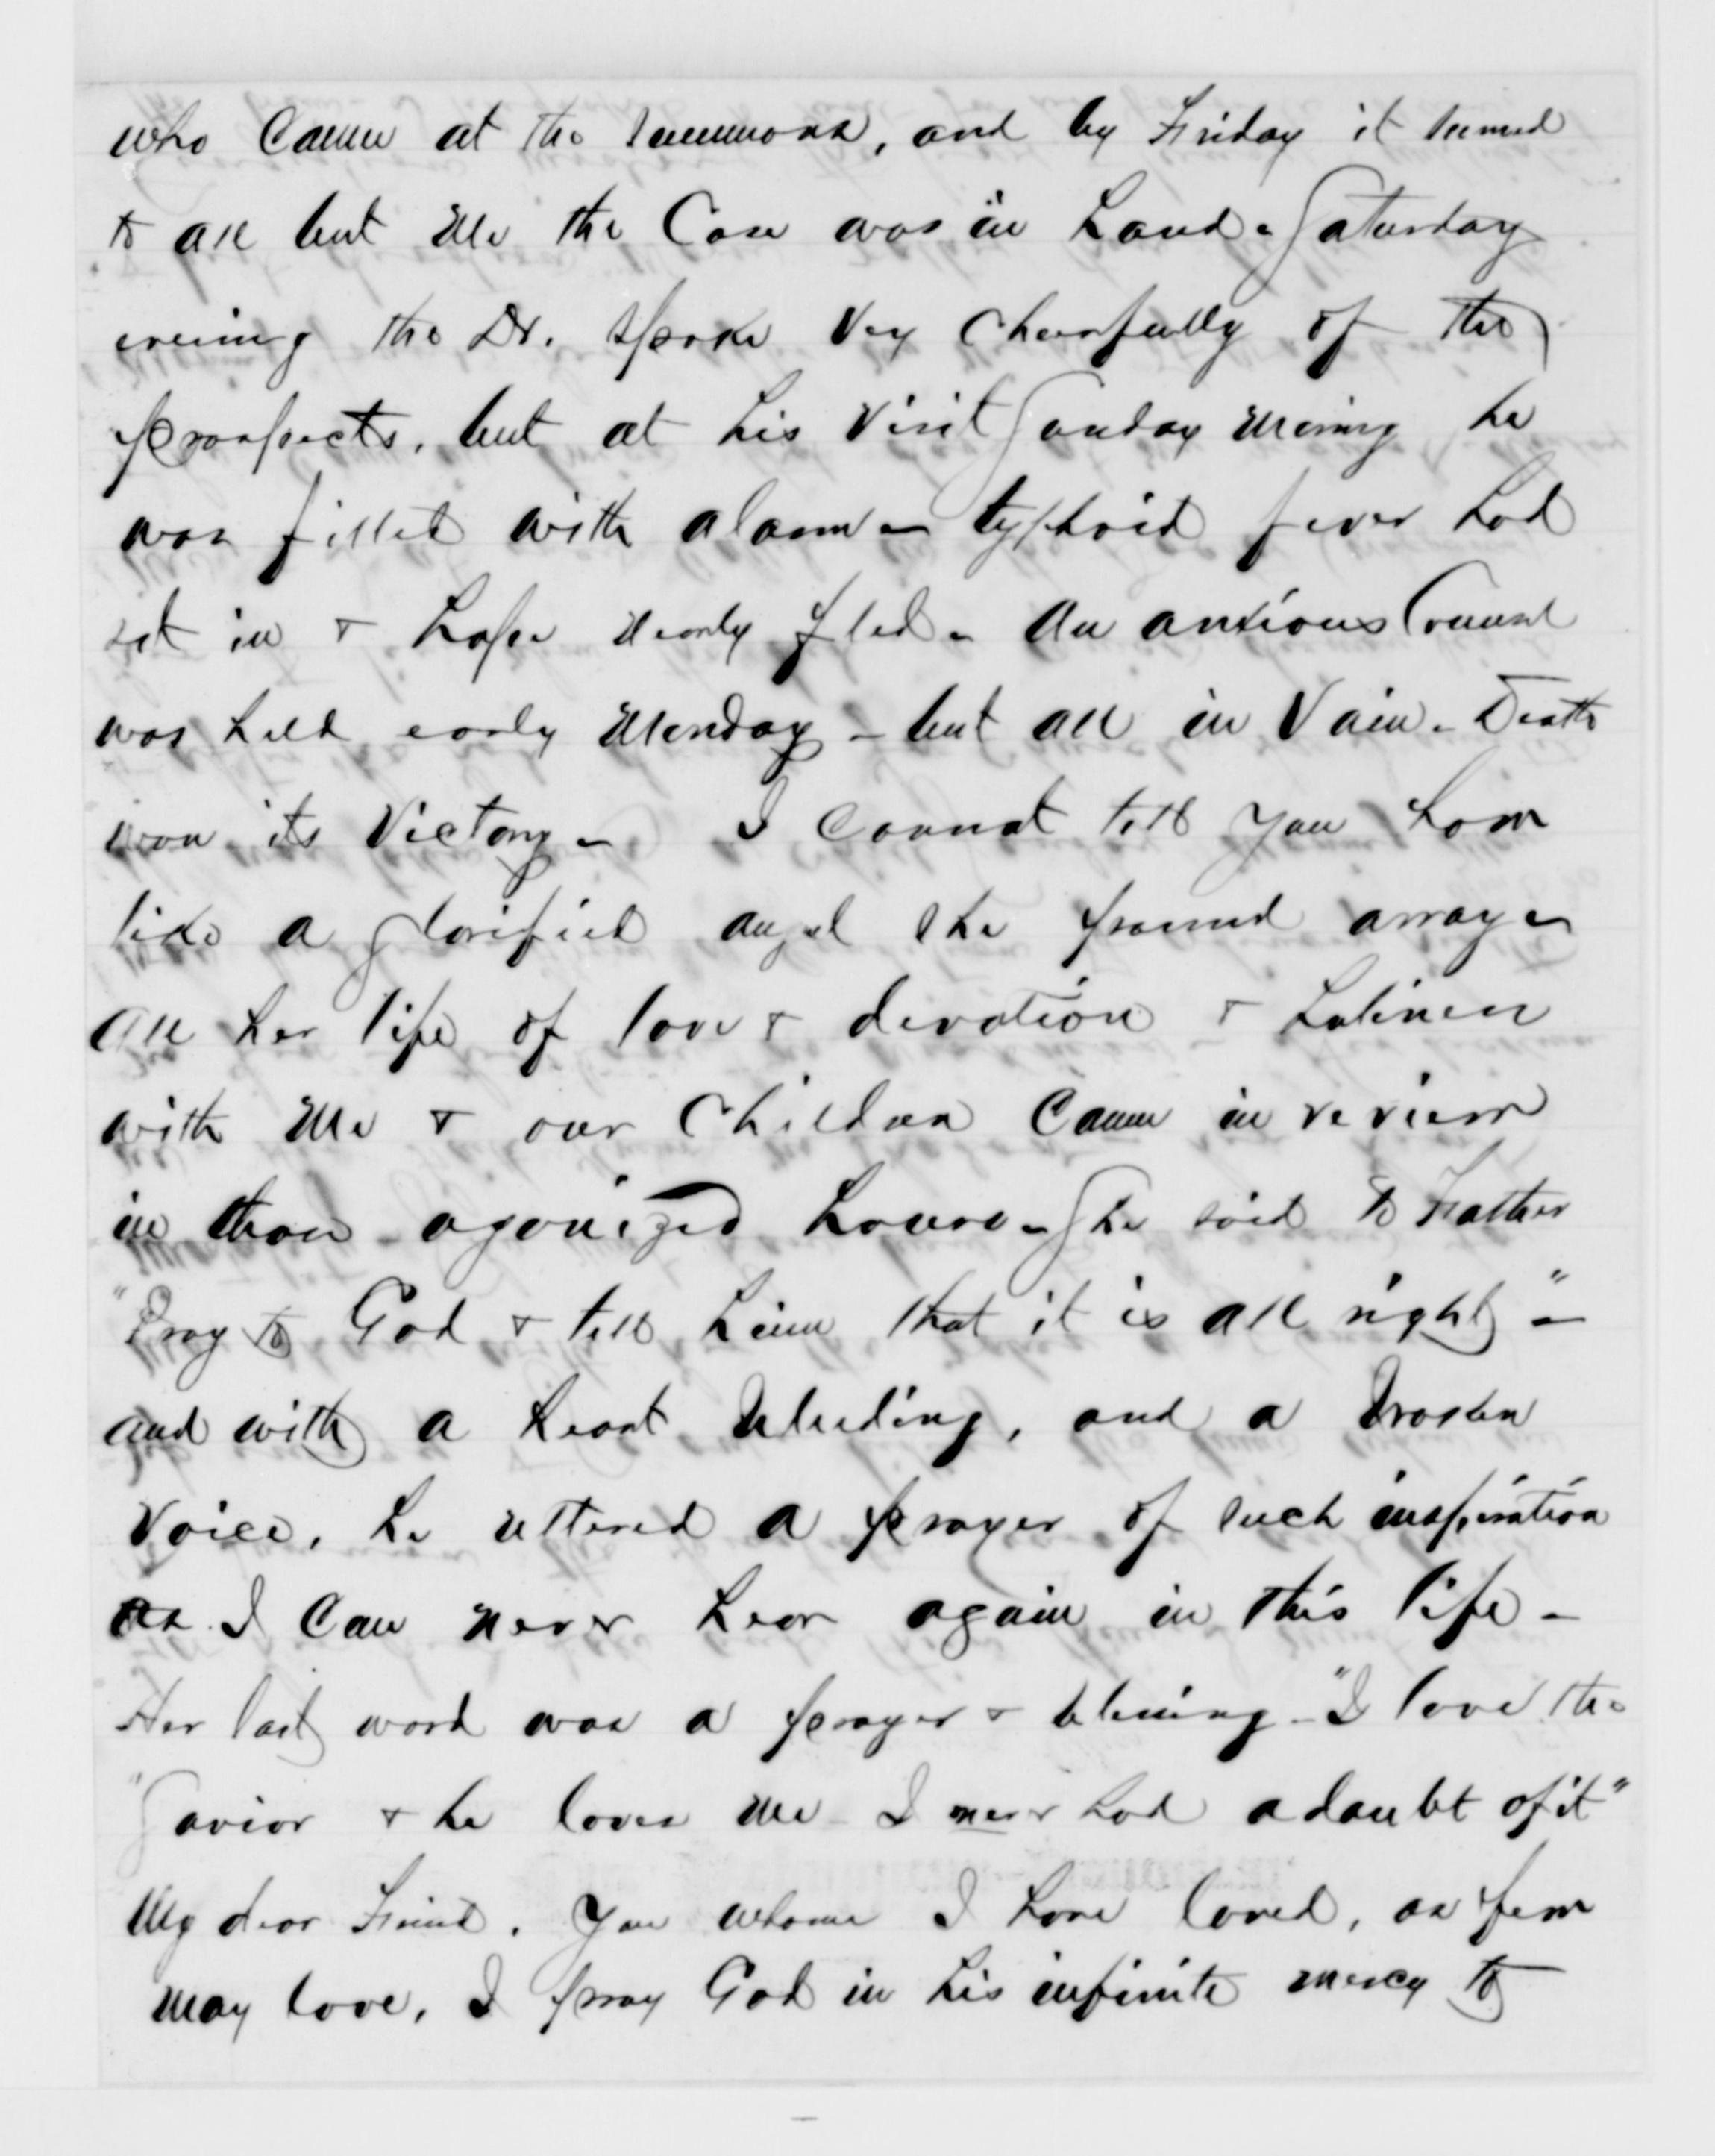 who Came at the Summons, and by Friday it seemed
to all but me the Case was in hand - Saturday
evening the Dr. spoke very cheerfully of the
prospects, but at his visit Sunday morning he
was filled with alarm - typhoid fever had
set in & hope nearly fled - An anxious Counsel
was held early Monday - but all in Vain - Death
won its Victory - I cannot tell you how
like a glorified angel she passed away -
All her life of love & devotion & holiness
with me & our Children Came in review
in those agonized hours - She said to Father
"Pray to God & tell him that it is all right" -
and with a heart bleeding, and a broken
Voice, he uttered a prayer of such inspiration
as I Can never hear again in this life -
Her last word was a prayer & blessing - "I love the
"Savior & he loves me - I never had a doubt of it"
My dear Friend. You whom I have loved, as few
may love, I pray God in his infinite mercy to